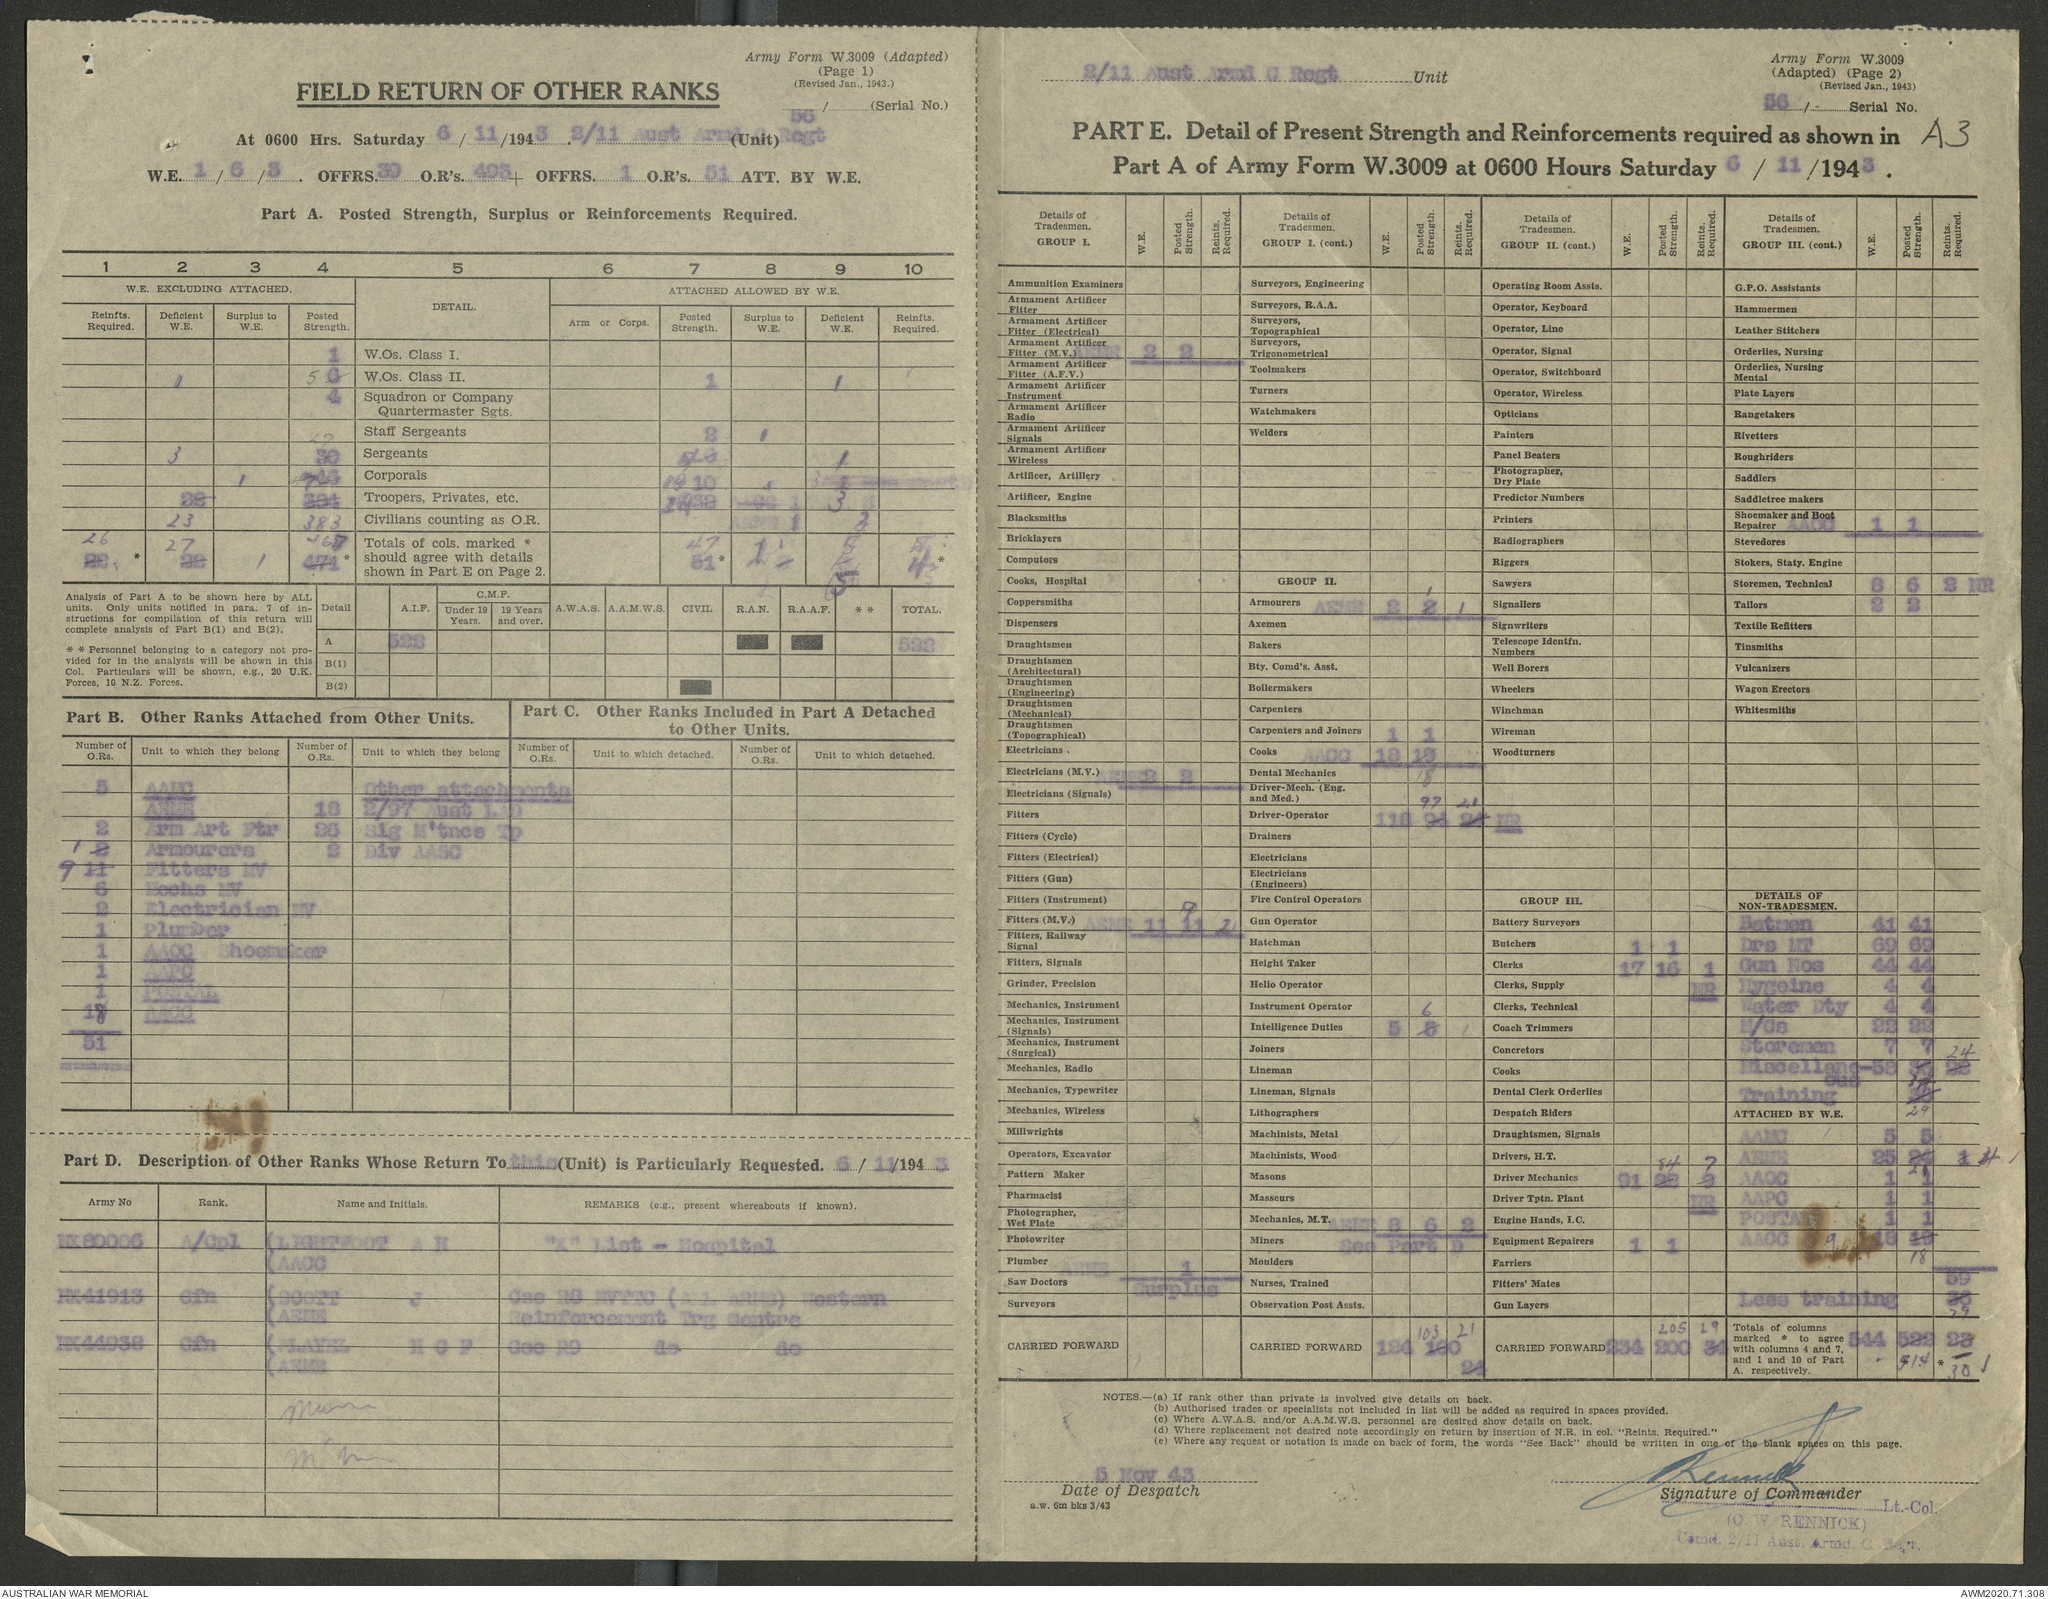 Army Form W.3009 (Adapted)
(Page 1)
(Revised Jan., 1943.)
FIELD RETURN OF OTHER RANKS
56 / (Serial No.)
At 0600 Hrs. Saturday 6 / 11 /1943 . 2/11 Aust Armd C Regt (Unit)
W.E. 1 / 6 / 3 . OFFRS. 39 O.R's. 493 + OFFRS. 1 O.R's. 51 ATT. BY W.E.
Part A. Posted Strength, Surplus or Reinforcements Required.
1 2 3 4 5 6 7 8 9 10
W.E. EXCLUDING ATTACHED. DETAIL. ATTACHED ALLOWED BY W.E.
Reinfts. Required. Deficient W.E. Surplus to W.E. Posted Strength. Arm or Corps. Posted Strength. Surplus to W.E. Deficient W.E. Reinfts. Required.
1 W.Os. Class I.
1 5 6 W.Os. Class II. 1 1
4 Squadron or Company Quartermaster Sgts.
Staff Sergeants 2 1
3 27 30 Sergeants 1
1 Corporals 10
28 384 Troopers, Privates, etc. 38 3
23 383 Civilians counting as O.R. AEME 1
26 27 467 47 5
28 * 28 1 471 * Totals of cols. marked * should agree with details shown in Part E on Page 2. 51 * *
Analysis of Part A to be shown here by ALL units. Only units notified in para. 7 of instructions for compilation of this return will complete analysis of Part B(1) and B(2).
* * Personnel belonging to a category not provided for in the analysis will be shown in this Col. Particulars will be shown, e.g., 20 U.K. Forces, 10 N.Z. Forces.
Detail A.I.F. C.M.F. Under 19 Years. 19 Years and over. A.W.A.S. A.A.M.W.S. CIVIL R.A.N. R.A.A.F. * * TOTAL.
A 522 522
B(1)
B(2)
Part B. Other Ranks Attached from Other Units.
Part C. Other Ranks Included in Part A Detached to Other Units.
Number of O.Rs. Unit to which they belong Number of O.Rs. Unit to which they belong Number of O.Rs. Unit to which detached. Number of O.Rs. Unit to which detached.
5 AAMC Other attachments
AEME 18 2/97 Aust LAD
2 Arm Art Ftr 26 Sig M'tnce Tp
1 2 Armourers 2 Div AASC
9 11 Fitters MV
6 Mechs MV
2 Electrician MV
1 Plumber
1 AAOC Shoemaker
1 AAPC
1 POSTAL
18 AACC
51
Part D. Description of Other Ranks Whose Return To this (Unit) is Particularly Requested. 6 / 11 /1943
Army No Rank. Name and Initials. REMARKS (e.g., present whereabouts if known).
NX80006 A/Cpl (LIGHTFOOT A H "X" List - Hospital
(AACC
NX41913 Cfn (SCOTT J Gse RO MVTTC (ALL ARMS) Western
(AEME Reinforcement Trg Centre
NX44938 Cfn H C F Gse RO do do
(AEME
2/11 Aust Armd C Regt Unit
Army Form W.3009
(Adapted) (Page 2)
(Revised Jan., 1943)
56 / - Serial No.
PART E. Detail of Present Strength and Reinforcements required as shown in A3
Part A of Army Form W.3009 at 0600 Hours Saturday 6 / 11 /1943 .
Details of Tradesmen. GROUP I. W.E. Posted Strength. Reints. Required.
Ammunition Examiners
Armament Artificer Fitter
Armament Artificer Fitter (Electrical)
Armament Artificer Fitter (M.V.) AEME 2 2
Armament Artificer Fitter (A.F.V.)
Armament Artificer Instrument
Armament Artificer Radio
Armament Artificer Signals
Armament Artificer Wireless
Artificer, Artillery
Artificer, Engine
Blacksmiths
Bricklayers
Computors
Cooks, Hospital
Coppersmiths
Dispensers
Draughtsmen
Draughtsmen (Architectural)
Draughtsmen (Engineering)
Draughtsmen (Mechanical)
Draughtsmen (Topographical)
Electricians .
Electricians (M.V.) AEME 2 2
Electricians (Signals)
Fitters
Fitters (Cycle)
Fitters (Electrical)
Fitters (Gun)
Fitters (Instrument)
Fitters (M.V.) AEME 11 11 9 2
Fitters, Railway Signal
Fitters, Signals
Grinder, Precision
Mechanics, Instrument
Mechanics, Instrument (Signals)
Mechanics, Instrument (Surgical)
Mechanics, Radio
Mechanics, Typewriter
Mechanics, Wireless
Millwrights
Operators, Excavator
Pattern Maker
Pharmacist
Photographer, Wet Plate
Photowriter
Plumber AEME 1
Saw Doctors Surplus
Surveyors
CARRIED FORWARD
Details of Tradesmen. GROUP I. (cont.) W.E. Posted Strength. Reints. Required.
Surveyors, Engineering
Surveyors, R.A.A.
Surveyors, Topographical
Surveyors, Trigonometrical
Toolmakers
Turners
Watchmakers
Welders
GROUP II.
Armourers AEME 2 2 1 1
Axemen
Bakers
Bty. Comd's. Asst.
Boilermakers
Carpenters
Carpenters and Joiners 1 1
Cooks AACC 18 19
Dental Mechanics 18
Driver-Mech. (Eng. and Med.)
Driver-Operator 118 94 97 24 21 NR
Drainers
Electricians
Electricians (Engineers)
Fire Control Operators
Gun Operator
Hatchman
Height Taker
Helio Operator
Instrument Operator
Intelligence Duties 5 5 6 1
Joiners
Lineman
Lineman, Signals
Lithographers
Machinists, Metal
Machinists, Wood
Masons
Masseurs
Mechanics, M.T. AEME 8 6 2
Miners See Part D
Moulders
Nurses, Trained
Observation Post Assts.
CARRIED FORWARD 124 100 103 21 24
Details of Tradesmen. GROUP II. (cont.) W.E. Posted Strength. Reints. Required.
Operating Room Assts.
Operator, Keyboard
Operator, Line
Operator, Signal
Operator, Switchboard
Operator, Wireless
Opticians
Painters
Panel Beaters
Photographer, Dry Plate
Predictor Numbers
Printers
Radiographers
Riggers
Sawyers
Signallers
Signwriters
Telescope Identfn. Numbers
Well Borers
Wheelers
Winchman
Wireman
Woodturners
GROUP III.
Battery Surveyors
Butchers 1 1
Clerks 17 16 1
Clerks, Supply NR
Clerks, Technical
Coach Trimmers
Concretors
Cooks
Dental Clerk Orderlies
Despatch Riders
Draughtsmen, Signals
Drivers, H.T.
Driver Mechanics 91 82 84 9 7
Driver Tptn. Plant NR
Engine Hands, I.C.
Equipment Repairers 1 1
Farriers
Fitters' Mates
Gun Layers
CARRIED FORWARD 234 200 205 34 29
Details of Tradesmen. GROUP III. (cont.) W.E. Posted Strength. Reints. Required.
G.P.O. Assistants
Hammermen
Leather Stitchers
Orderlies, Nursing
Orderlies, Nursing Mental
Plate Layers
Rangetakers
Rivetters
Roughriders
Saddlers
Saddletree makers
Shoemaker and Boot Repairer AAOC 1 1
Stevedores
Stokers, Staty. Engine
Storemen, Technical 8 6 2 NR
Tailors 2 2
Textile Refitters
Tinsmiths
Vulcanizers
Wagon Erectors
Whitesmiths
DETAILS OF NON-TRADESMEN.
Batmen 41 41
Drs MT 69 69
Gun Nos 44 44
Hygeine 4 4
Water Dty 4 4
M/Cs 22 22
Storemen 7 7
Miscellaneous 58 24
Training 29
ATTACHED BY W.E.
AAMC 5 5
AEME 25 24
AAOC 1 1
AAPC 1 1
POSTAL 1 1
AACC 18 19 18
59
Less training 29
Totals of columns marked * to agree with columns 4 and 7, and 1 and 10 of Part A. respectively. 544 522 514 * 30
NOTES.—(a) If rank other than private is involved give details on back.
(b) Authorised trades or specialists not included in list will be added as required in spaces provided.
(c) Where A.W.A.S. and/or A.A.M.W.S. personnel are desired show details on back.
(d) Where replacement not desired note accordingly on return by insertion of N.R. in col. "Reints. Required."
(e) Where any request or notation is made on back of form, the words "See Back" should be written in one of the blank spaces on this page.
5 Nov 43
Date of Despatch
a.w. 6m bks 3/43
Rennick
Signature of Commander
Lt.-Col.
(O. W. RENNICK)
Comd. 2/11 Aust. Armd. C. Regt.
AUSTRALIAN WAR MEMORIAL
AWM2020.71.308